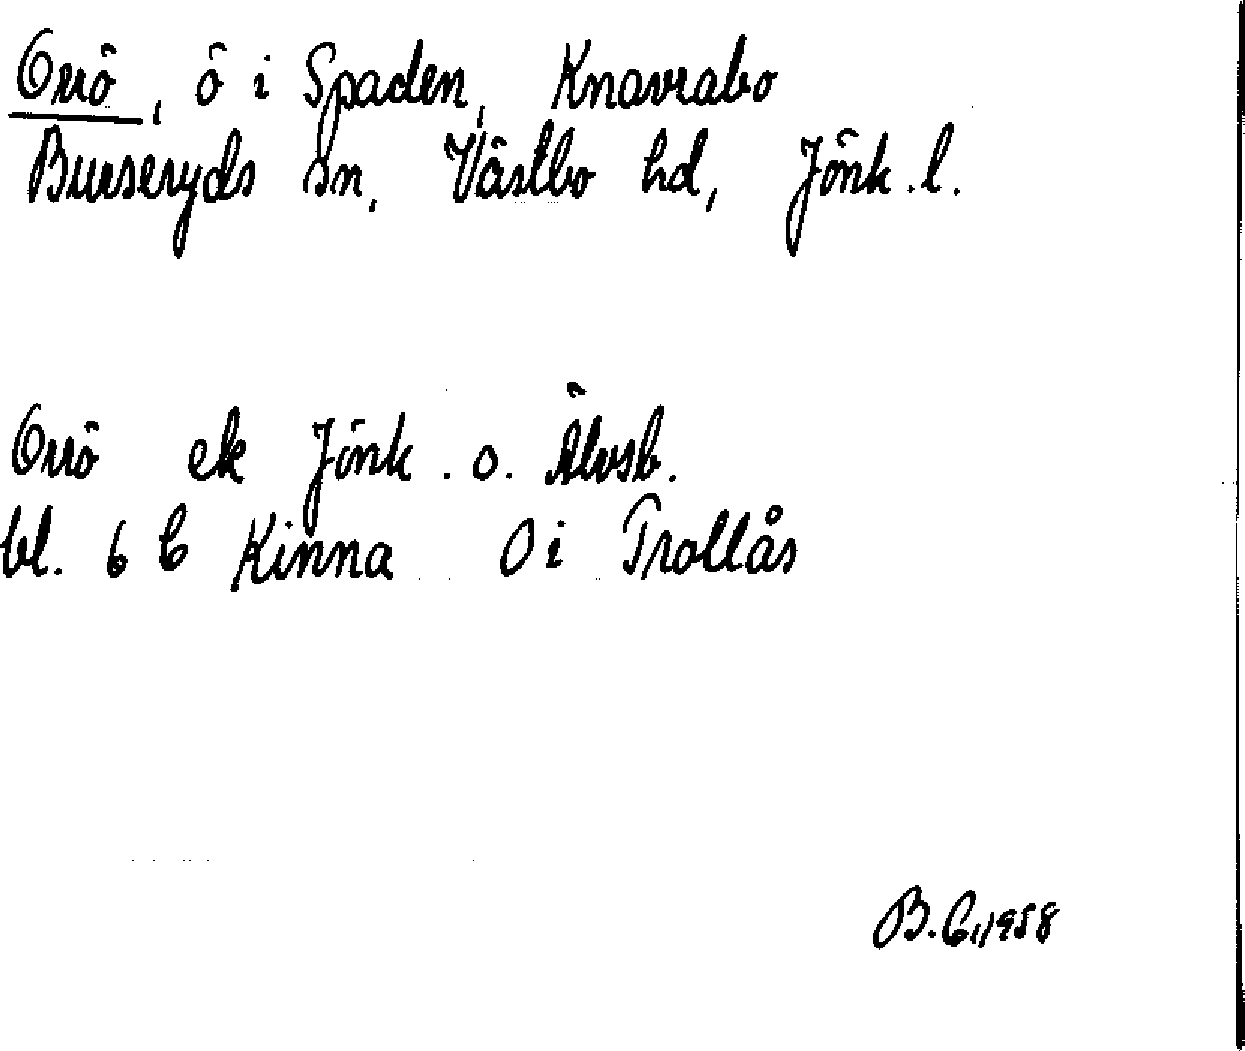 Orrö, ö i Spaden, Knavrabo
Burseryds sn, Västbo hd, Jönk. l.
Orrö ek Jönk. o. Älvsb.
bl. 6 C Kinna O i Trollås
B. C. 1958